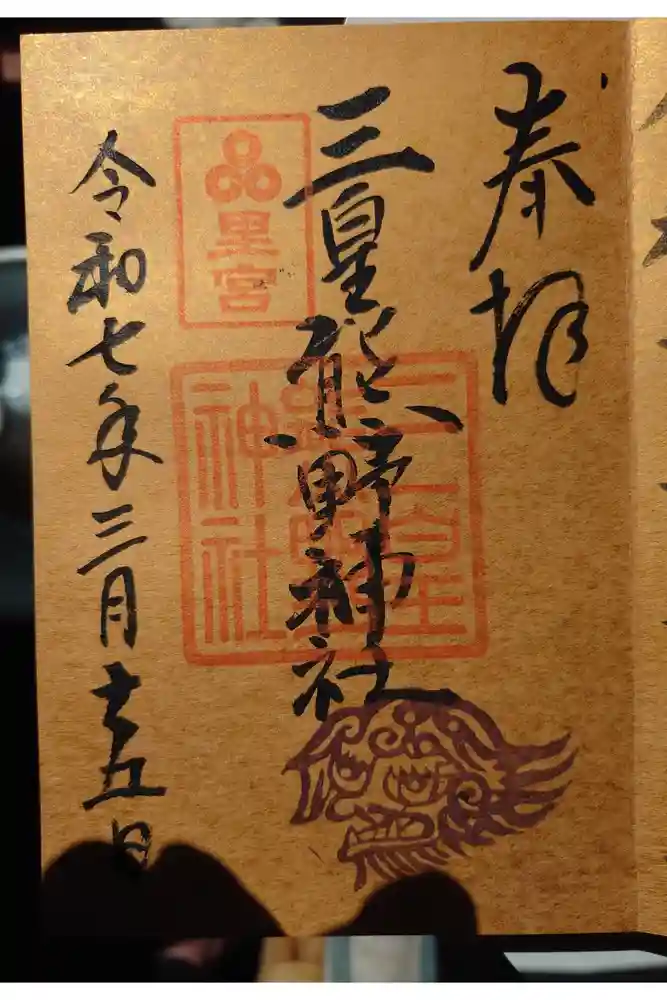 奉拝
三皇熊野神社
里宮
三皇熊野神社
令和七年三月十五日